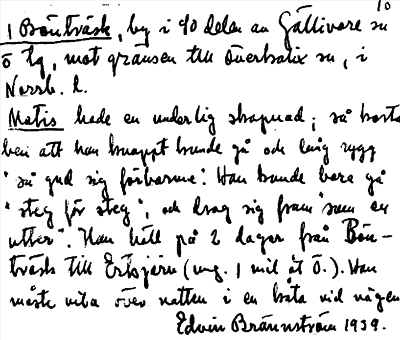 10
1 Bönträsk, by i SO delen av Gällivare sn
o hg, mot gränsen till Överkalix sn, i
Norrb. l.
Matis hade en underlig skapnad; så korta
ben att han knappt kunde gå och lång rygg
"så gud sig förbarme". Han kunde bara gå
"steg för steg", och drog sig fram "som en
utter". Han höll på 2 dagar från Bön-
träsk till Ertsjärv (ung. 1 mil åt Ö.). Han
måste vila över natten i en kåta vid vägen.
Edvin Brännström 1939.